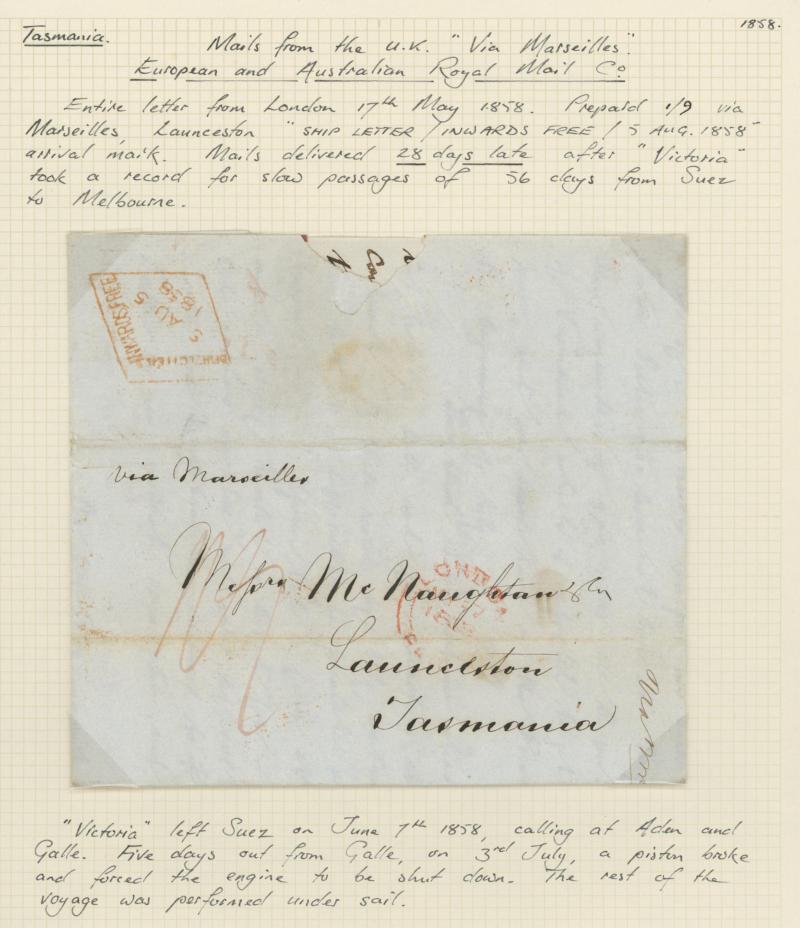 1858.
Tasmania.
Mails from the U.K. "Via Marseilles".
European and Australian Royal Mail Co
Entire letter from London 17th May 1858. Prepaid 1/9 via
Marseilles, Launceston "SHIP LETTER / INWARDS FREE / 5 AUG. 1858"
arrival mark. Mails delivered 28 days late after "Victoria"
took a record for slow passages of 56 days from Suez
to Melbourne.
INWARDS FREE
5
AU 5
1858
SHIP LETTER
via Marseilles
1/9
Messrs McNaughtan & Co
LONDON
Launceston
Tasmania
"Victoria" left Suez on June 7th 1858, calling at Aden and
Galle. Five days out from Galle, on 3rd July, a piston broke
and forced the engine to be shut down. The rest of the
voyage was performed under sail.